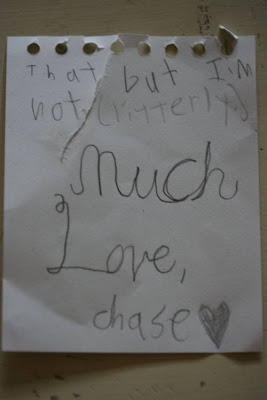 That but I'm
not (ritterly)
Much
Love,
chase